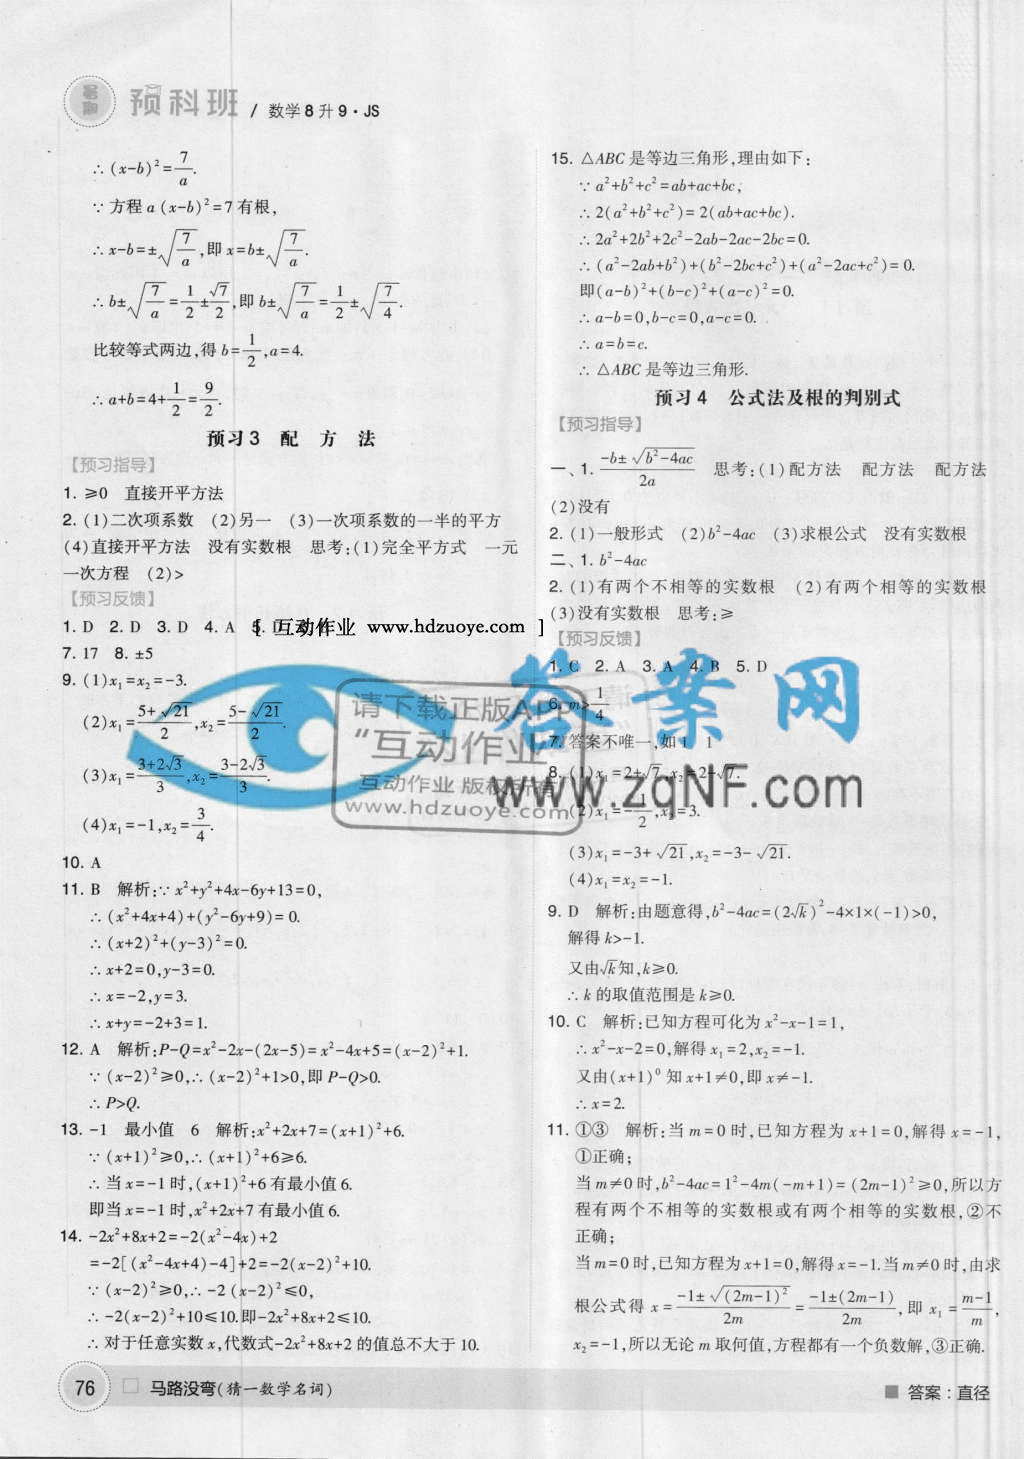 暑期 预科班 / 数学8升9·JS
∴ (x-b)²=7/a.
∵ 方程 a(x-b)²=7 有根,
∴ x-b=±√(7/a),即 x=b±√(7/a).
∴ b±√(7/a)=1/2±√7/2,即 b±√(7/a)=1/2±√(7/4).
比较等式两边,得 b=1/2,a=4.
∴ a+b=4+1/2=9/2.
预习3 配 方 法
【预习指导】
1. ≥0 直接开平方法
2. (1)二次项系数 (2)另一 (3)一次项系数的一半的平方
(4)直接开平方法 没有实数根 思考:(1)完全平方式 一元
一次方程 (2)>
【预习反馈】
1. D 2. D 3. D 4. A 5. D
[ 互动作业 www.hdzuoye.com ]
7. 17 8. ±5
9. (1)x₁=x₂=-3.
(2)x₁=(5+√21)/2,x₂=(5-√21)/2.
(3)x₁=(3+2√3)/3,x₂=(3-2√3)/3.
(4)x₁=-1,x₂=3/4.
10. A
11. B 解析:∵ x²+y²+4x-6y+13=0,
∴ (x²+4x+4)+(y²-6y+9)=0.
∴ (x+2)²+(y-3)²=0.
∴ x+2=0,y-3=0.
∴ x=-2,y=3.
∴ x+y=-2+3=1.
12. A 解析:P-Q=x²-2x-(2x-5)=x²-4x+5=(x-2)²+1.
∵ (x-2)²≥0,∴ (x-2)²+1>0,即 P-Q>0.
∴ P>Q.
13. -1 最小值 6 解析:x²+2x+7=(x+1)²+6.
∵ (x+1)²≥0,∴ (x+1)²+6≥6.
∴ 当 x=-1 时,(x+1)²+6 有最小值 6.
即当 x=-1 时,x²+2x+7 有最小值 6.
14. -2x²+8x+2=-2(x²-4x)+2
=-2[(x²-4x+4)-4]+2=-2(x-2)²+10.
∵ (x-2)²≥0,∴ -2(x-2)²≤0,
∴ -2(x-2)²+10≤10.即-2x²+8x+2≤10.
∴ 对于任意实数 x,代数式-2x²+8x+2 的值总不大于 10.
15. △ABC 是等边三角形,理由如下:
∵ a²+b²+c²=ab+ac+bc,
∴ 2(a²+b²+c²)=2(ab+ac+bc).
∴ 2a²+2b²+2c²-2ab-2ac-2bc=0.
∴ (a²-2ab+b²)+(b²-2bc+c²)+(a²-2ac+c²)=0.
即(a-b)²+(b-c)²+(a-c)²=0.
∴ a-b=0,b-c=0,a-c=0.
∴ a=b=c.
∴ △ABC 是等边三角形.
预习4 公式法及根的判别式
【预习指导】
一、1. (-b±√(b²-4ac))/2a 思考:(1)配方法 配方法 配方法
(2)没有
2. (1)一般形式 (2)b²-4ac (3)求根公式 没有实数根
二、1. b²-4ac
2. (1)有两个不相等的实数根 (2)有两个相等的实数根
(3)没有实数根 思考:≥
【预习反馈】
1. C 2. A 3. A 4. B 5. D
6. m>1/4
7. 答案不唯一,如 1 1
8. (1)x₁=2+√7,x₂=2-√7.
(2)x₁=-1/2,x₂=3.
(3)x₁=-3+√21,x₂=-3-√21.
(4)x₁=x₂=-1.
9. D 解析:由题意得,b²-4ac=(2√k)²-4×1×(-1)>0,
解得 k>-1.
又由√k知,k≥0.
∴ k 的取值范围是 k≥0.
10. C 解析:已知方程可化为 x²-x-1=1,
∴ x²-x-2=0,解得 x₁=2,x₂=-1.
又由(x+1)⁰ 知 x+1≠0,即 x≠-1.
∴ x=2.
11. ①③ 解析:当 m=0 时,已知方程为 x+1=0,解得 x=-1,
①正确;
当 m≠0 时,b²-4ac=1²-4m(-m+1)=(2m-1)²≥0,所以方
程有两个不相等的实数根或有两个相等的实数根,②不
正确;
当 m=0 时,已知方程为 x+1=0,解得 x=-1.当 m≠0 时,由求
根公式得 x=(-1±√((2m-1)²))/2m=(-1±(2m-1))/2m,即 x₁=(m-1)/m,
x₂=-1,所以无论 m 取何值,方程都有一个负数解,③正确.
请下载正版APP
“互动作业”
互动作业 版权所有
www.hdzuoye.com
答案网
www.zqNF.com
76 马路没弯(猜一数学名词)
答案:直径